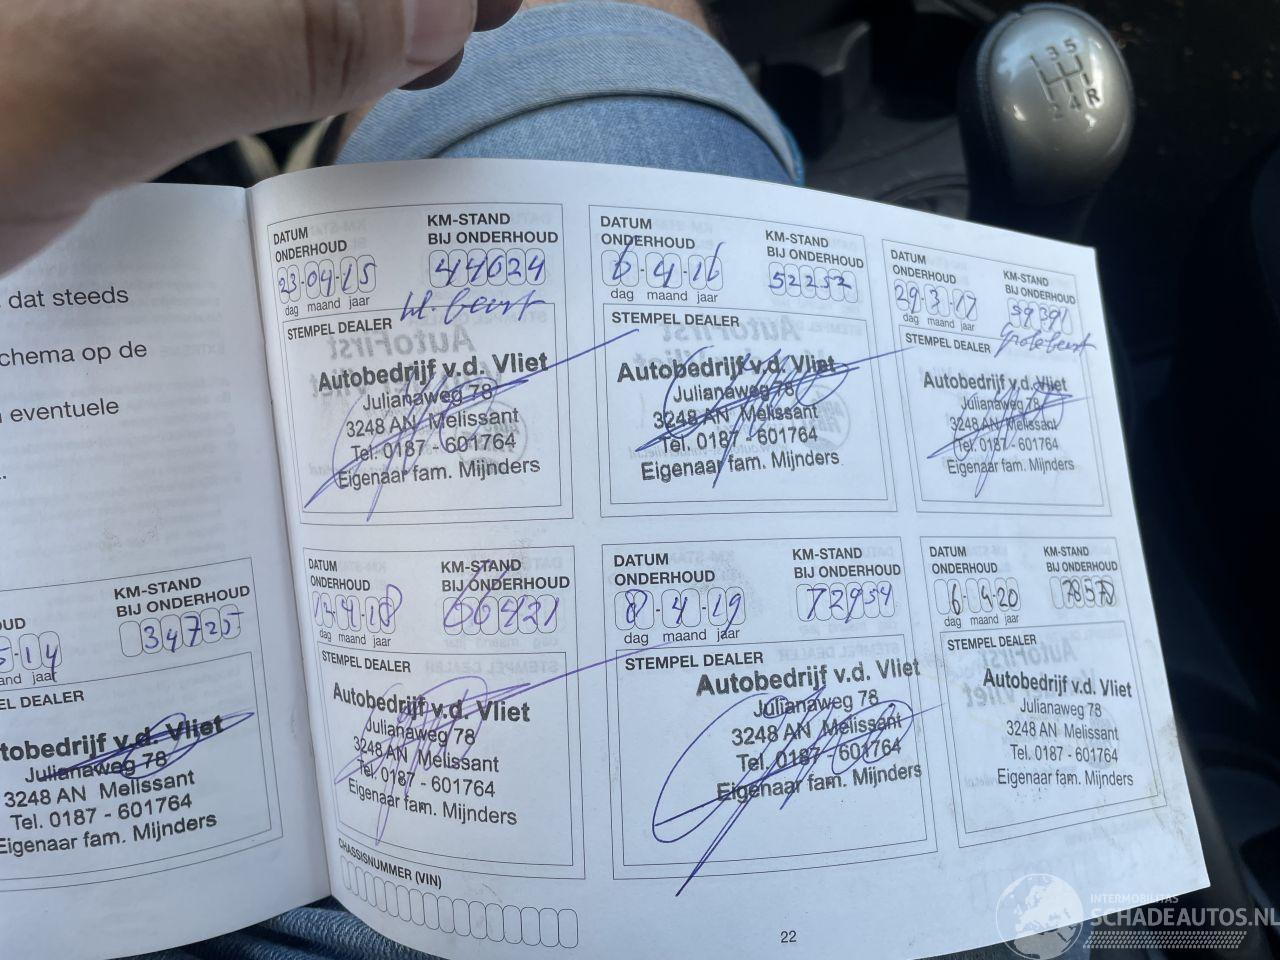 dat steeds
chema op de
eventuele
KM-STAND
BIJ ONDERHOUD
34725
5-14
jaar
DEALER
v.d. Vliet
Julianaweg 78
3248 AN Melissant
Tel. 0187 - 601764
Eigenaar fam. Mijnders
DATUM
ONDERHOUD
23-04-15
dag maand jaar
KM-STAND
BIJ ONDERHOUD
44624
kl. beurt
STEMPEL DEALER
Autobedrijf v.d. Vliet
Julianaweg 78
3248 AN Melissant
Tel. 0187 - 601764
Eigenaar fam. Mijnders
DATUM
ONDERHOUD
6-4-16
dag maand jaar
KM-STAND
BIJ ONDERHOUD
52252
STEMPEL DEALER
Autobedrijf v.d. Vliet
Julianaweg 78
3248 AN Melissant
Tel. 0187 - 601764
Eigenaar fam. Mijnders
DATUM
ONDERHOUD
29-3-17
dag maand jaar
KM-STAND
BIJ ONDERHOUD
59391
Grote beurt
STEMPEL DEALER
Autobedrijf v.d. Vliet
Julianaweg 78
3248 AN Melissant
Tel. 0187 - 601764
Eigenaar fam. Mijnders
DATUM
ONDERHOUD
12-4-18
dag maand jaar
KM-STAND
BIJ ONDERHOUD
66421
STEMPEL DEALER
Autobedrijf v.d. Vliet
Julianaweg 78
3248 AN Melissant
Tel. 0187 - 601764
Eigenaar fam. Mijnders
DATUM
ONDERHOUD
8-4-19
dag maand jaar
KM-STAND
BIJ ONDERHOUD
72954
STEMPEL DEALER
Autobedrijf v.d. Vliet
Julianaweg 78
3248 AN Melissant
Tel. 0187 - 601764
Eigenaar fam. Mijnders
DATUM
ONDERHOUD
6-4-20
dag maand jaar
KM-STAND
BIJ ONDERHOUD
STEMPEL DEALER
Autobedrijf v.d. Vliet
Julianaweg 78
3248 AN Melissant
Tel. 0187 - 601764
Eigenaar fam. Mijnders
CHASSISNUMMER (VIN)
22
1 3 5
2 4 R
INTERMOBILITAS
SCHADEAUTOS.NL